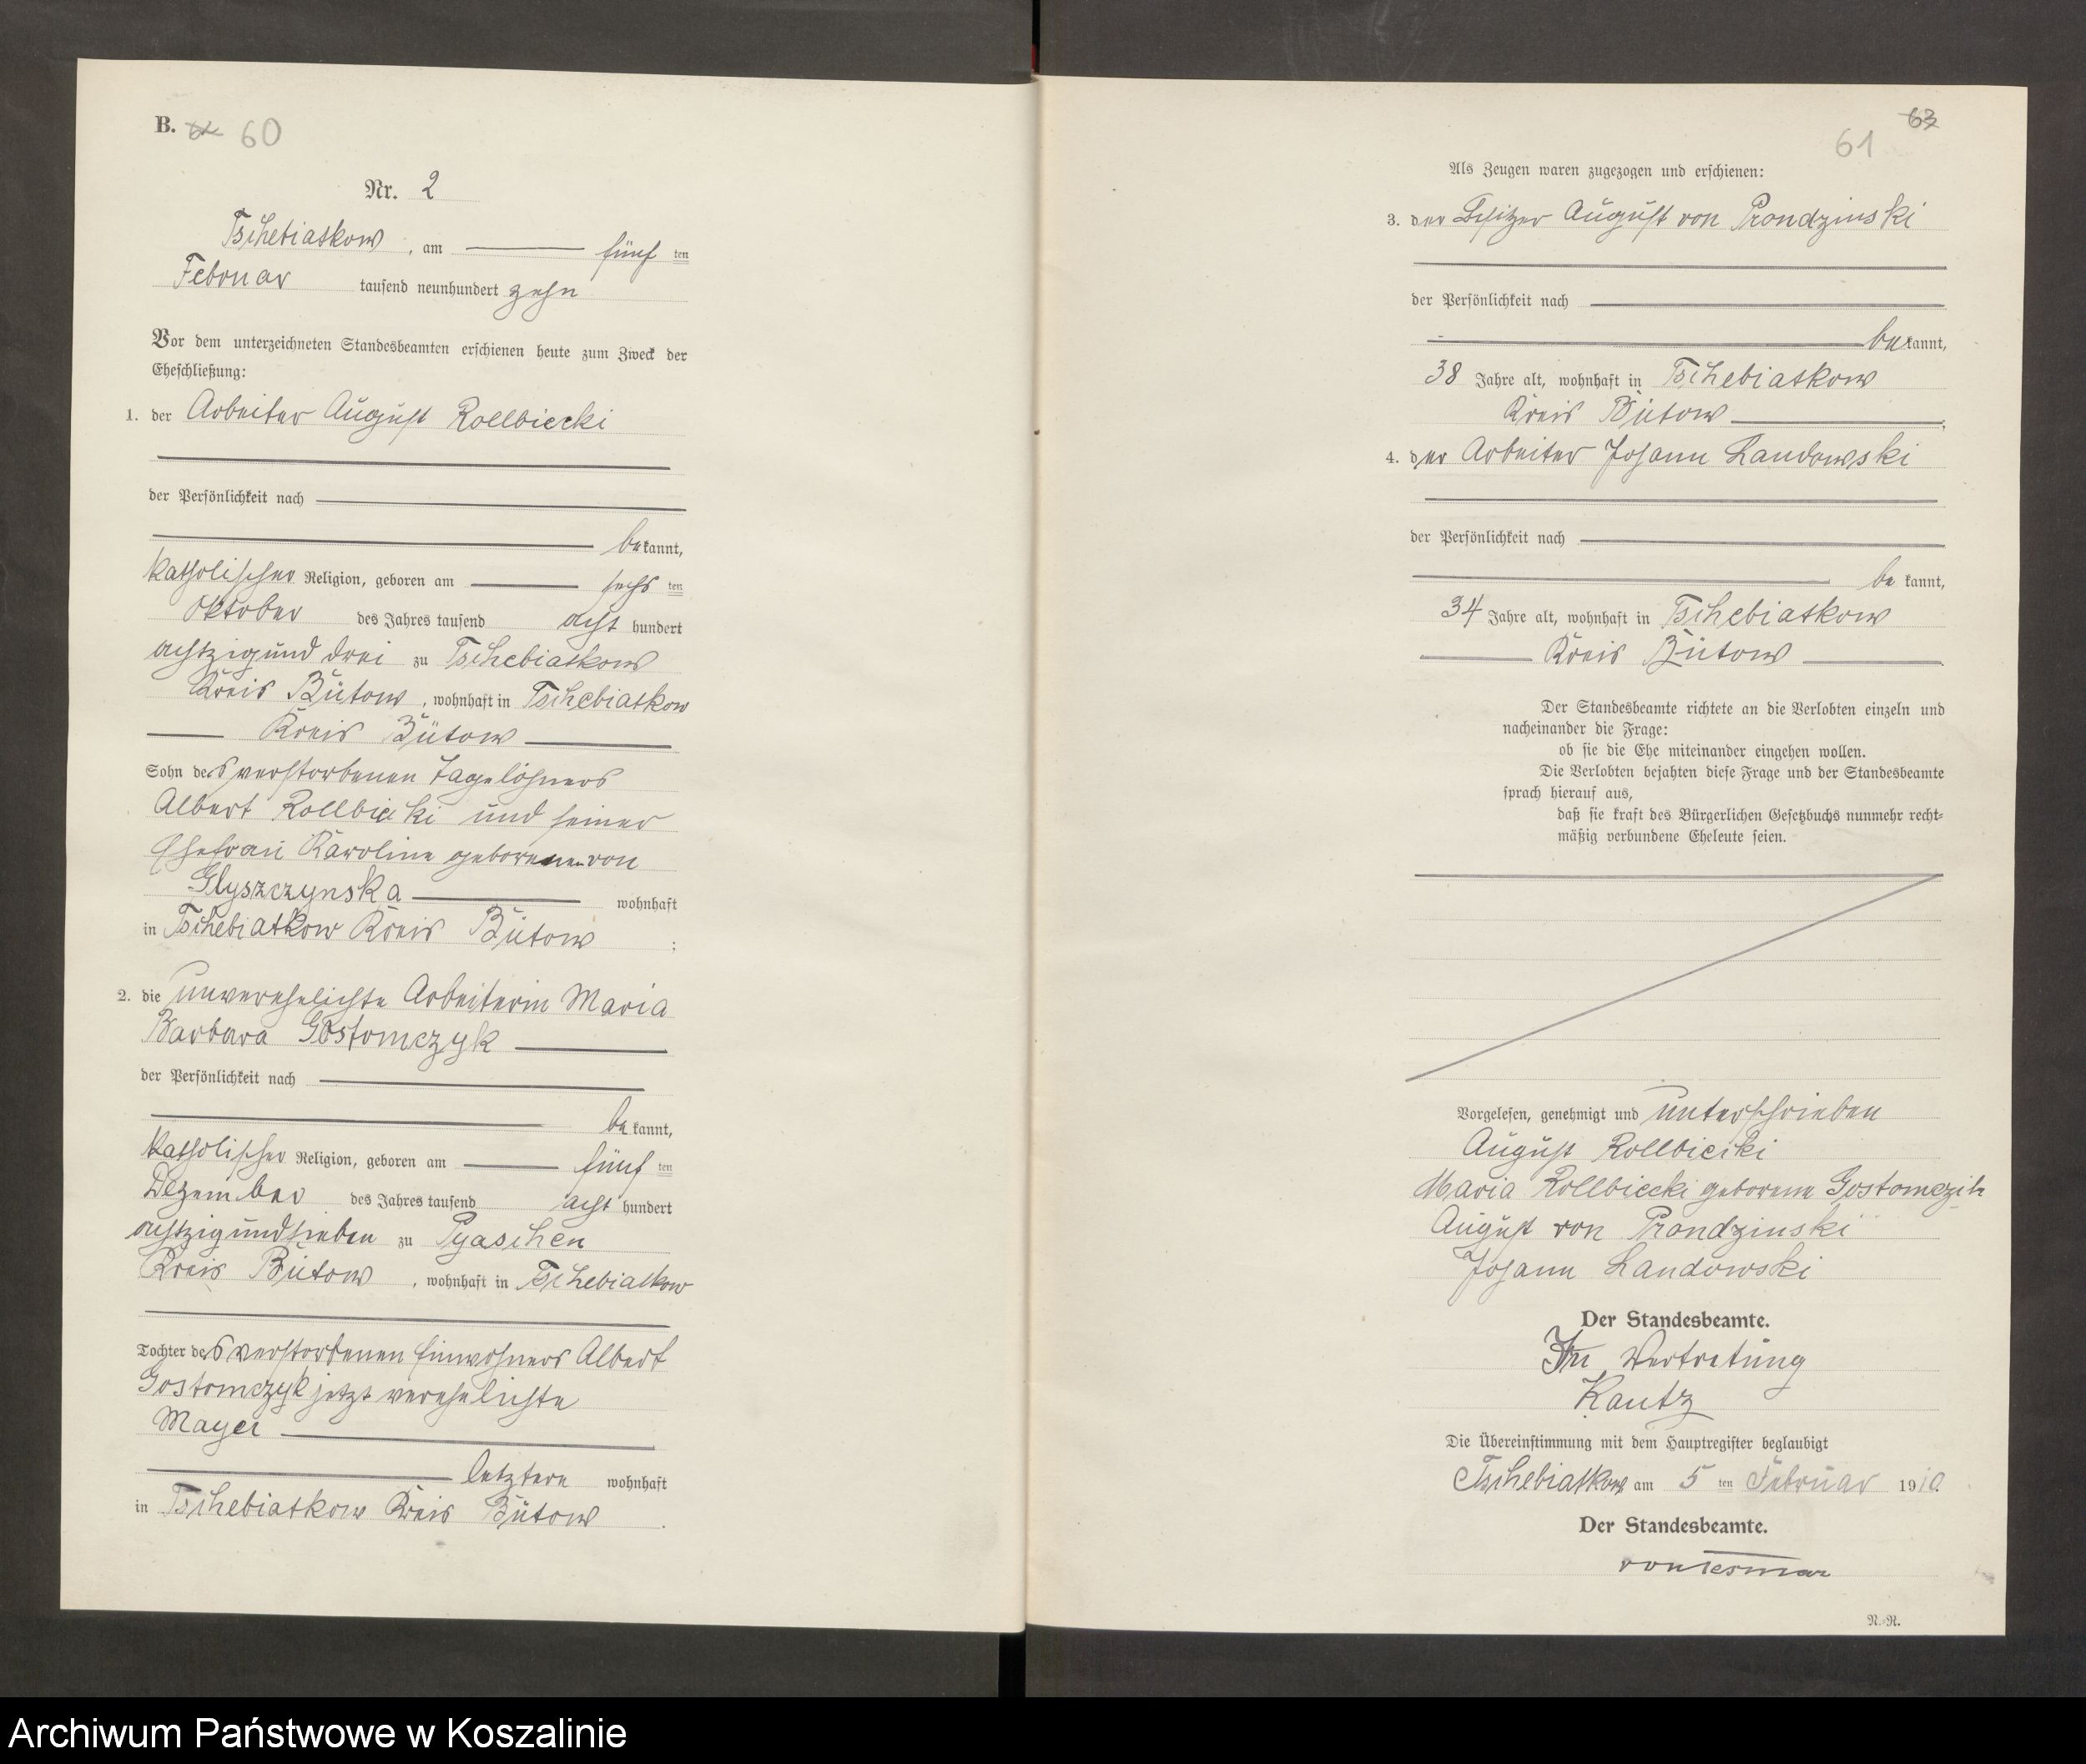 B. 60
Nr. 2
Tschebiatkow, am fünf ten
Februar tausend neunhundert zehn
Vor dem unterzeichneten Standesbeamten erschienen heute zum Zweck der
Eheschließung:
1. der Arbeiter August Rollbiecki
der Persönlichkeit nach
bekannt,
katholischer Religion, geboren am sechs ten
Oktober des Jahres tausend acht hundert
achtzigund drei zu Tschebiatkow
Kreis Bütow, wohnhaft in Tschebiatkow
Kreis Bütow
Sohn des verstorbenen Tagelöhners
Albert Rollbiecki und seiner
Ehefrau Karoline geborenen von
Glyszczynska wohnhaft
in Tschebiatkow Kreis Bütow ;
2. die unverehelichte Arbeiterin Maria
Barbara Gostomczyk
der Persönlichkeit nach
bekannt,
katholischer Religion, geboren am fünf ten
Dezember des Jahres tausend acht hundert
achtzigundsieben zu Pyaschen
Kreis Bütow, wohnhaft in Tschebiatkow
Tochter des verstorbenen Einwohners Albert
Gostomczyk jetzt verehelichte
Mayer
letztere wohnhaft
in Tschebiatkow Kreis Bütow .
63
61
Als Zeugen waren zugezogen und erschienen:
3. der Besitzer August von Prondzinski
der Persönlichkeit nach
bekannt,
38 Jahre alt, wohnhaft in Tschebiatkow
Kreis Bütow ;
4. der Arbeiter Johann Landowski
der Persönlichkeit nach
be kannt,
34 Jahre alt, wohnhaft in Tschebiatkow
Kreis Bütow .
Der Standesbeamte richtete an die Verlobten einzeln und
nacheinander die Frage:
ob sie die Ehe miteinander eingehen wollen.
Die Verlobten bejahten diese Frage und der Standesbeamte
sprach hierauf aus,
daß sie kraft des Bürgerlichen Gesetzbuchs nunmehr recht-
mäßig verbundene Eheleute seien.
Vorgelesen, genehmigt und unterschrieben
August Rollbiecki
Maria Rollbiecki geborene Gostomczik
August von Prondzinski
Johann Landowski
Der Standesbeamte.
In Vertretung
Kautz
Die Übereinstimmung mit dem Hauptregister beglaubigt
Tschebiatkow am 5 ten Februar 1910.
Der Standesbeamte.
von Tesmar
N.-R.
Archiwum Państwowe w Koszalinie